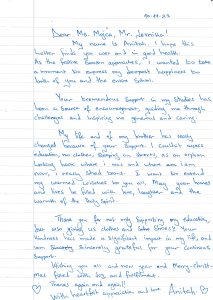 Dear Ms. Mojca, Mr. Jernisa!
My name is Anitah. I hope this
letter finds you well and in good health.
As the festive season approaches, I wanted to take
a moment to express my deepest happiness to
both of you and the entire School.
Your tremendous support in my studies has
been a beacon of encouragement, guiding me through
challenges and inspiring me general and caring.
My life and of my brother has really
changed because of your support. I couldn't access
education, no clothes, sleeping on streets, as an orphan
looking back where I was and where am I am
now, I really shed tears. I want to extend
my warmest wishes to you all. May your homes
and lives be filled with love, laughter and the
warmth of the Holy Spirit.
Thank you for not only supporting my education,
but also giving us clothes and Shoes!! Your
kindness has made a significant impact in my life, and
I am sincerely grateful for your continuous
Support.
Wishing you all and new year and Merry Christ-
mas filled with joy and fulfillment.
Thanks again and again!!
With heartfelt appreciation and love Anitah